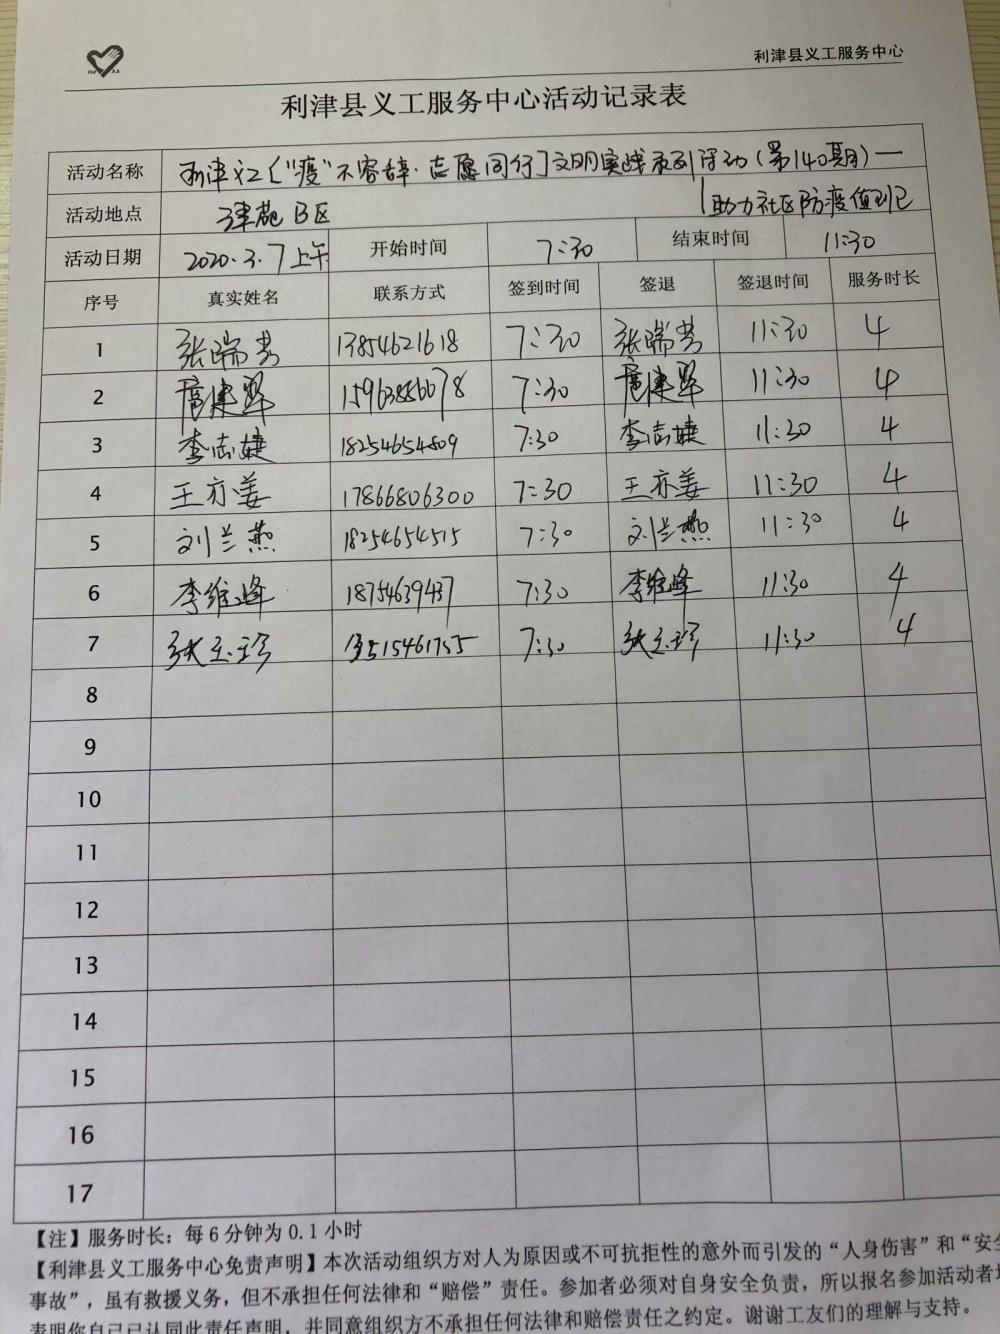 利津县义工服务中心
利津县义工服务中心活动记录表
活动名称 利津义工["疫"不容辞·志愿同行]文明实践系列活动(第140期)—
活动地点 津苑B区 助力社区防疫值班
活动日期 2020.3.7上午 开始时间 7:30 结束时间 11:30
序号 真实姓名 联系方式 签到时间 签退 签退时间 服务时长
1 张瑞芳 13854621618 7:30 张瑞芳 11:30 4
2 扈建 7:30 扈建 11:30 4
3 李志婕 18254654809 7:30 李志婕 11:30 4
4 王亦姜 17866806300 7:30 王亦姜 11:30 4
5 刘兰燕 18254654515 7:30 刘兰燕 11:30 4
6 李维峰 18754639437 7:30 李维峰 11:30 4
7 张玉珍 7:30 张玉珍 11:30 4
8
9
10
11
12
13
14
15
16
17
【注】服务时长：每6分钟为0.1小时
【利津县义工服务中心免责声明】本次活动组织方对人为原因或不可抗拒性的意外而引发的“人身伤害”和“安全
事故”，虽有救援义务，但不承担任何法律和“赔偿”责任。参加者必须对自身安全负责，所以报名参加活动者
表明你自己已认同此责任声明，并同意组织方不承担任何法律和赔偿责任之约定。谢谢工友们的理解与支持。